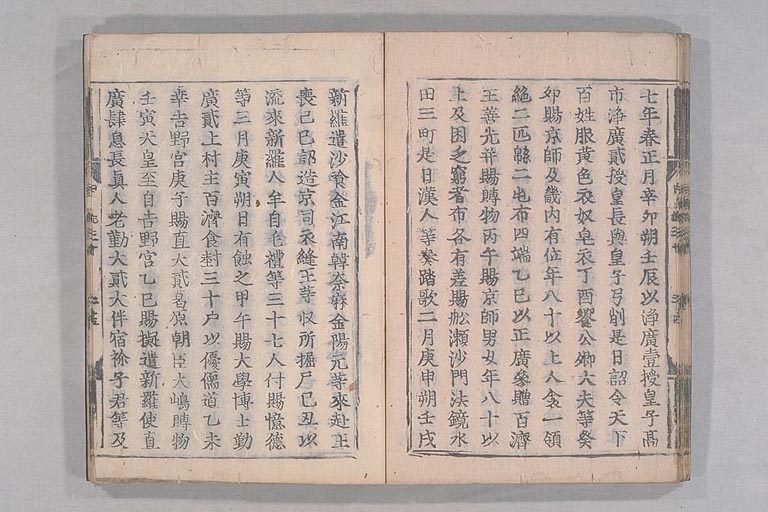 七年春正月辛卯朔壬辰以浄廣壹授皇子髙
市浄廣貳授皇長與皇子弓削是日詔令天下
百姓服黄色衣奴皂衣丁酉饗公卿大夫等癸
卯賜京師及畿内有位年八十以上人衾一領
絁二匹緜二屯布四端乙巳以正廣参贈百濟
王善光并賜賻物丙午賜京師男女年八十以
上及困乏窮者布各有差賜舩瀬沙門法鏡水
田三町是日漢人等奏踏歌二月庚申朔壬戌
新羅遣沙飡金江南韓奈麻金陽元等来赴王
喪己巳詔造京司衣縫王等収所掘尸己丑以
流来新羅人牟自毛禮等三十七人付賜憶德
等三月庚寅朔日有蝕之甲午賜大學博士勤
廣貳上村主百濟食封三十户以優儒道乙未
幸吉野宮庚子賜直大貳葛原朝臣大嶋賻物
壬寅天皇至自吉野宮乙巳賜擬遣新羅使直
廣肆息長真人老勤大貳大伴宿祢子君等及